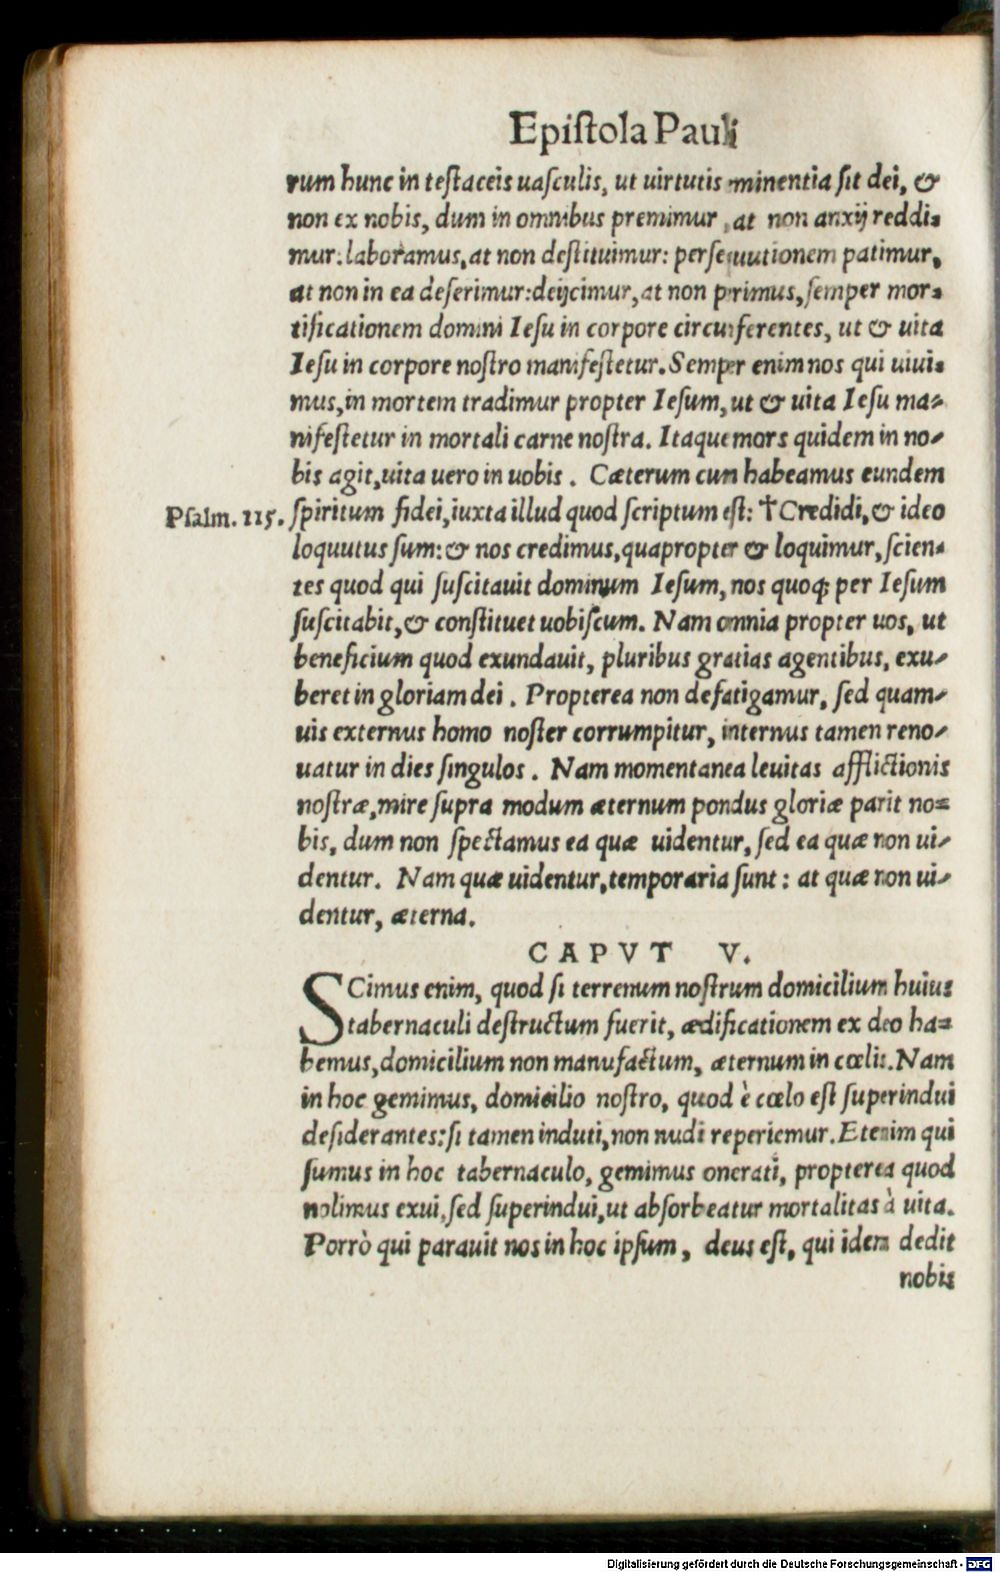 Epiſtola Pauli
rum hunc in teſtaceis uaſculis, ut uirtutis minentia ſit dei, &
non ex nobis, dum in omnibus premimur, at non anxij reddi-
mur: laboramus, at non deſtituimur: perſequutionem patimur,
at non in ea deſerimur: deijcimur, at non perimus, ſemper mor-
tificationem domini Ieſu in corpore circumferentes, ut & uita
Ieſu in corpore noſtro manifeſtetur. Semper enim nos qui uiui-
mus, in mortem tradimur propter Ieſum, ut & uita Ieſu ma-
nifeſtetur in mortali carne noſtra. Itaque mors quidem in no-
bis agit, uita uero in uobis. Cæterum cum habeamus eundem
Pſalm. 115. ſpiritum fidei, iuxta illud quod ſcriptum eſt: †Credidi, & ideo
loquutus ſum: & nos credimus, quapropter & loquimur, ſcien-
tes quod qui ſuſcitauit dominum Ieſum, nos quoq; per Ieſum
ſuſcitabit, & conſtituet uobiſcum. Nam omnia propter uos, ut
beneficium quod exundauit, pluribus gratias agentibus, exu-
beret in gloriam dei. Propterea non defatigamur, ſed quam-
uis externus homo noſter corrumpitur, internus tamen reno-
uatur in dies ſingulos. Nam momentanea leuitas afflictionis
noſtræ, mire ſupra modum æternum pondus gloriæ parit no-
bis, dum non ſpectamus ea quæ uidentur, ſed ea quæ non ui-
dentur. Nam quæ uidentur, temporaria ſunt: at quæ non ui-
dentur, æterna.
CAPVT V.
SCimus enim, quod ſi terrenum noſtrum domicilium huius
tabernaculi deſtructum fuerit, ædificationem ex deo ha-
bemus, domicilium non manufactum, æternum in cœlis. Nam
in hoc gemimus, domicilio noſtro, quod è cœlo eſt ſuperindui
deſiderantes: ſi tamen induti, non nudi reperiemur. Etenim qui
ſumus in hoc tabernaculo, gemimus onerati, propterea quod
nolimus exui, ſed ſuperindui, ut abſorbeatur mortalitas à uita.
Porrò qui parauit nos in hoc ipſum, deus eſt, qui idem dedit
nobis
Digitalisierung gefördert durch die Deutsche Forschungsgemeinschaft - DFG